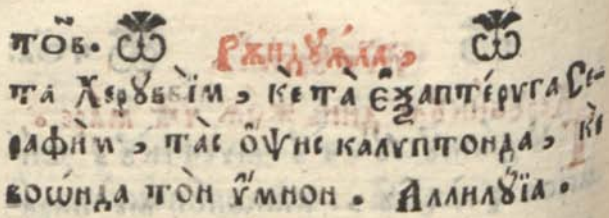 тѡ҃в. Ѿ Ржндꙋѧла, Ѿ
та Херꙋ́в̾їм, кѐ та̀ є҆ѯаптє́рѵга Се-
рафи̇́м, та́с ѻ҆́ѱис калѵ́птонда, кѐ
воѡ́нда то́н ѵ҆́мнон. Аллилꙋ́їа.